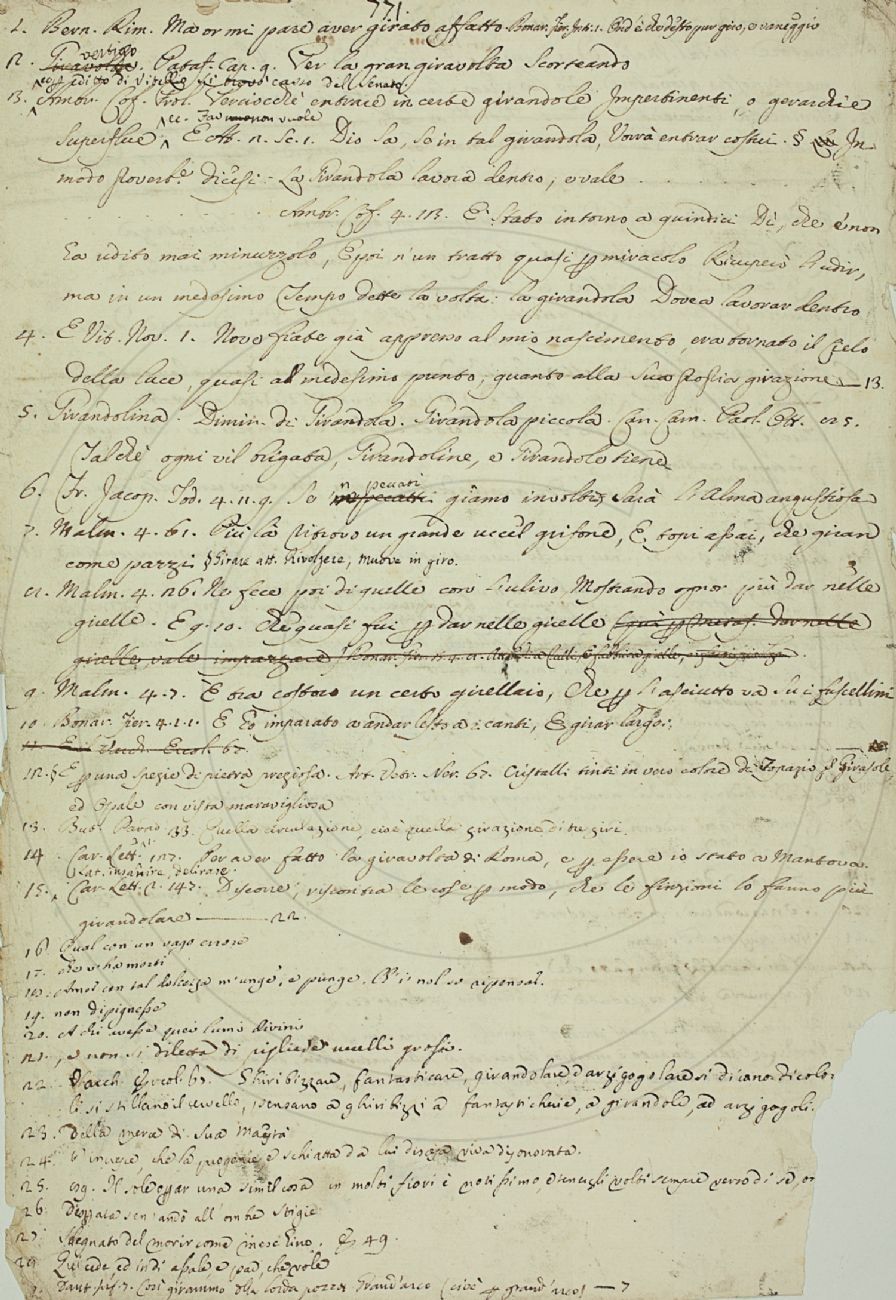 771.
1. Bern. Rim. Ma or mi pare aver girato affatto. Bonar. Fier. giro, e vaneggio
vertigo
2. Giravolta. Pataf. Cap. 9. Per la gran giravolta scorteando
editto di Vitello si trovò casso del Senato.
3. Ambr. Cof. Prol. Perciocchè entrare in certe girandole impertinenti, o gerarchie
superflue E att. 2. Sc. 1. Dio sa, se in tal girandola, vorrà entrar costui. § In
modo proverb. dicesi: La Girandola lavora dentro, e vale
Ambr. Cof. 4. 13. E' stato intorno a quindici Dì, che e' non
ha udito mai minuzzolo, E poi n'un tratto quasi p miracolo Ricuperò l'udir,
ma in un medesimo Tempo dette la volta: la girandola Dovea lavorar dentro
4. E Vit. Nov. 1. Nove fiate già appresso al mio nascimento, era tornato il Cielo
della luce, quasi al medesimo punto, quanto alla sua propia girazione — 13.
5. Girandolina. Dimin. di Girandola. Girandola piccola. Can. Carn. Paol. Ott. 25.
Talchè ogni vil brigata, Girandoline, e Girandole tiene
6. Fr. Jacop. Tod. 4. 11. 9. Se n peccati giamo involti, sarà l'Alma angustiosa
7. Malm. 4. 61. Più là ritrovo un grande uccel grifone, E topi assai, che giran
come pazzi. § Girare att. Rivolgere, muove in giro.
8. Malm. 4. 26. Ne fece poi di quelle con l'ulivo, Mostrando ognor più dar nelle
girelle. E 9. 10. Che quasi fui p dar nelle girelle
girelle, vale impazzare
9. Malm. 4. 7. E ora costoro un certo girellaio, Che p l'asciutto va su i fuscellini
10. Bonar. Fier. 4. 1. 1. E ho imparato a andar lesto a' canti, E girar largo.
11. Ercol. 67.
12. § E p una spezie di pietra preziosa. Art. Vetr. Ner. 67. Cristalli tinti in vero colore di Topazio, Girasole,
ed Opale con vista maravigliosa
13. But. Parad. 33. Quella circulazione, cioè quella girazione di tre giri.
14. Car. Lett. 127. Per aver fatto la giravolta di Roma, e p essere io stato a Mantova.
Lat. insanire, delirare.
15. Car. Lett. 2. 147. Discorre, riscontra le cose p modo, che le finzioni lo fanno più
girandolare — 22.
16. Qual con un vago errore
17. che v'ha morti
18. Amor con tal dolcezza m'unge, e punge. Ch'i nol so ripensar.
19. non dipignesse
20. A chi avesse quei lumi divini
21. , e non si diletta di pigliare uccelli grossi.
22. Varch. Ercol. 67. Ghiribizzare, fantasticare, girandolare, d'arzigogolare si dicono di colo-
li si stillano il cervello, pensano a ghiribizzi a fantasticherie, a girandole, ad arzigogoli.
23. Della mera di Sua Maestà
24. V'increbbe che la progenie, e schiatta da lui discesa viva disonorata.
25. Il sole operar una simil cosa in molti fiori è notissimo, e tenergli volti sempre verso di sè, or
26. Dispare sen'andò all'ombre Stigie
27. Sdegnato del morir come meschino. 49.
28. Qui cede, ed indi assale, e par, che vole
Dant. Inf. 7. Così girammo della lorda pozza Grand'arco (cioè p grand'arco) — 7